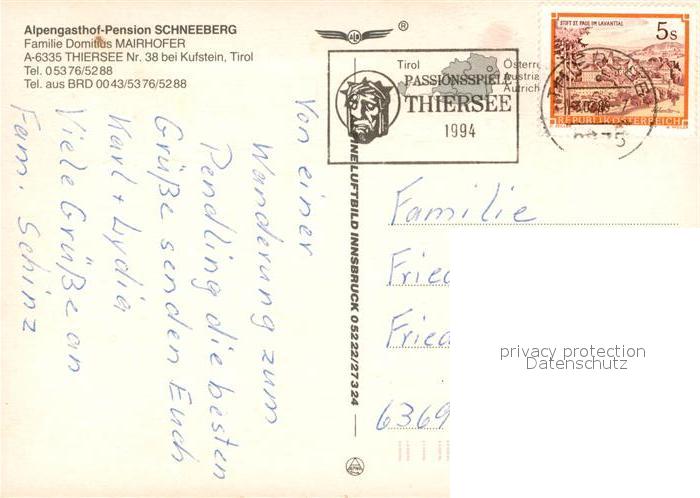 Alpengasthof-Pension SCHNEEBERG
Familie Domitius MAIRHOFER
A-6335 THIERSEE Nr. 38 bei Kufstein, Tirol
Tel. 05376/5288
Tel. aus BRD 0043/5376/5288
Von einer
Wanderung zum
Pendling die besten
Grüße senden Euch
Karl + Lydia
Viele Grüße an
Fam. Schinz
INNSBRUCK 05222/27324
®
Tirol
Autrich
PASSIONSSPIELE
THIERSEE
1994
STIFT ST. PAUL IM LAVANTTAL
5s
REPUBLIK ÖSTERREICH
Familie
Fried
Fried
6369
privacy protection
Datenschutz